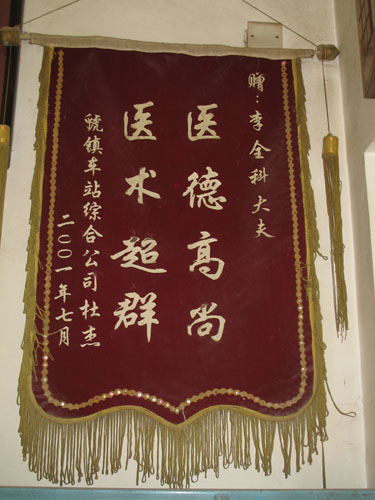 赠：李全科大夫
医德高尚
医术超群
虢镇车站综合公司杜杰
二〇〇一年七月